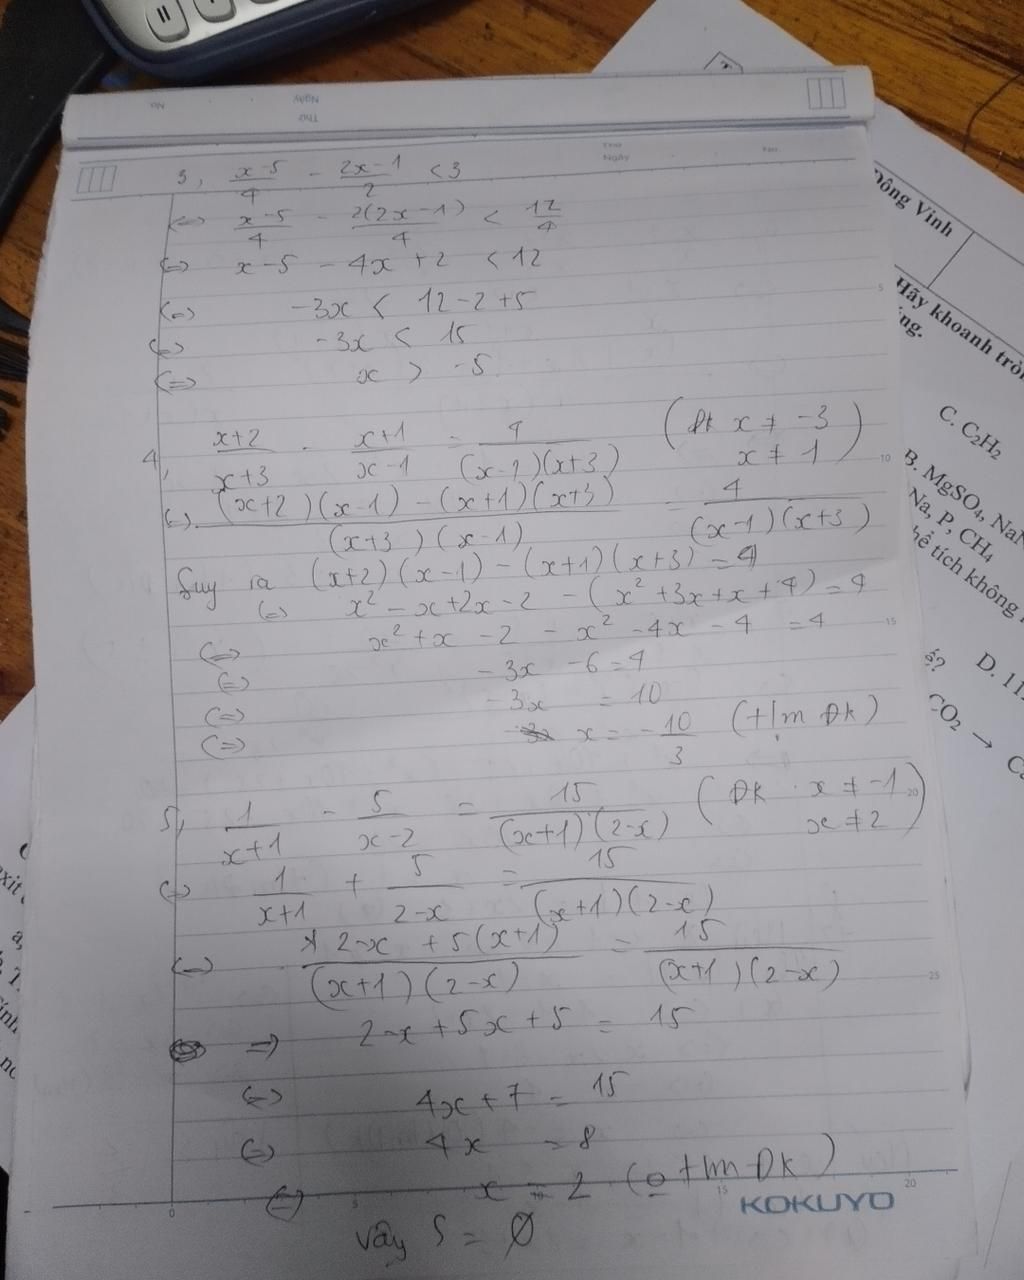 No.
Ngày
Thứ
Thứ
Ngày
No.
3, \frac{x-5}{4} - \frac{2x-1}{2} < 3
<=> \frac{x-5}{4} - \frac{2(2x-1)}{4} < \frac{12}{4}
<=> x-5 - 4x + 2 < 12
<=> -3x < 12-2+5
<=> -3x < 15
<=> x > -5
4, \frac{x+2}{x+3} - \frac{x+1}{x-1} = \frac{4}{(x-1)(x+3)} (Đk x ≠ -3 x ≠ 1)
<=> \frac{(x+2)(x-1) - (x+1)(x+3)}{(x+3)(x-1)} = \frac{4}{(x-1)(x+3)}
Suy ra (x+2)(x-1) - (x+1)(x+3) = 4
<=> x² - x + 2x - 2 - (x² + 3x + x + 4) = 4
<=> x² + x - 2 - x² - 4x - 4 = 4
<=> -3x - 6 = 4
<=> -3x = 10
<=> x = -\frac{10}{3} (t/m Đk)
5, \frac{1}{x+1} - \frac{5}{x-2} = \frac{15}{(x+1)(2-x)} (Đk x ≠ -1 x ≠ 2)
<=> \frac{1}{x+1} + \frac{5}{2-x} = \frac{15}{(x+1)(2-x)}
<=> \frac{2-x + 5(x+1)}{(x+1)(2-x)} = \frac{15}{(x+1)(2-x)}
=> 2-x + 5x + 5 = 15
<=> 4x + 7 = 15
<=> 4x = 8
<=> x = 2 (o t/m Đk)
vậy S = Ø
5
10
15
20
25
0
5
10
15
20
KOKUYO
Đông Vinh
Hãy khoanh tròn
C. C₂H₂
B. MgSO₄, NaN
Na, P, CH₄
thể tích không
D. 11
CO₂ →